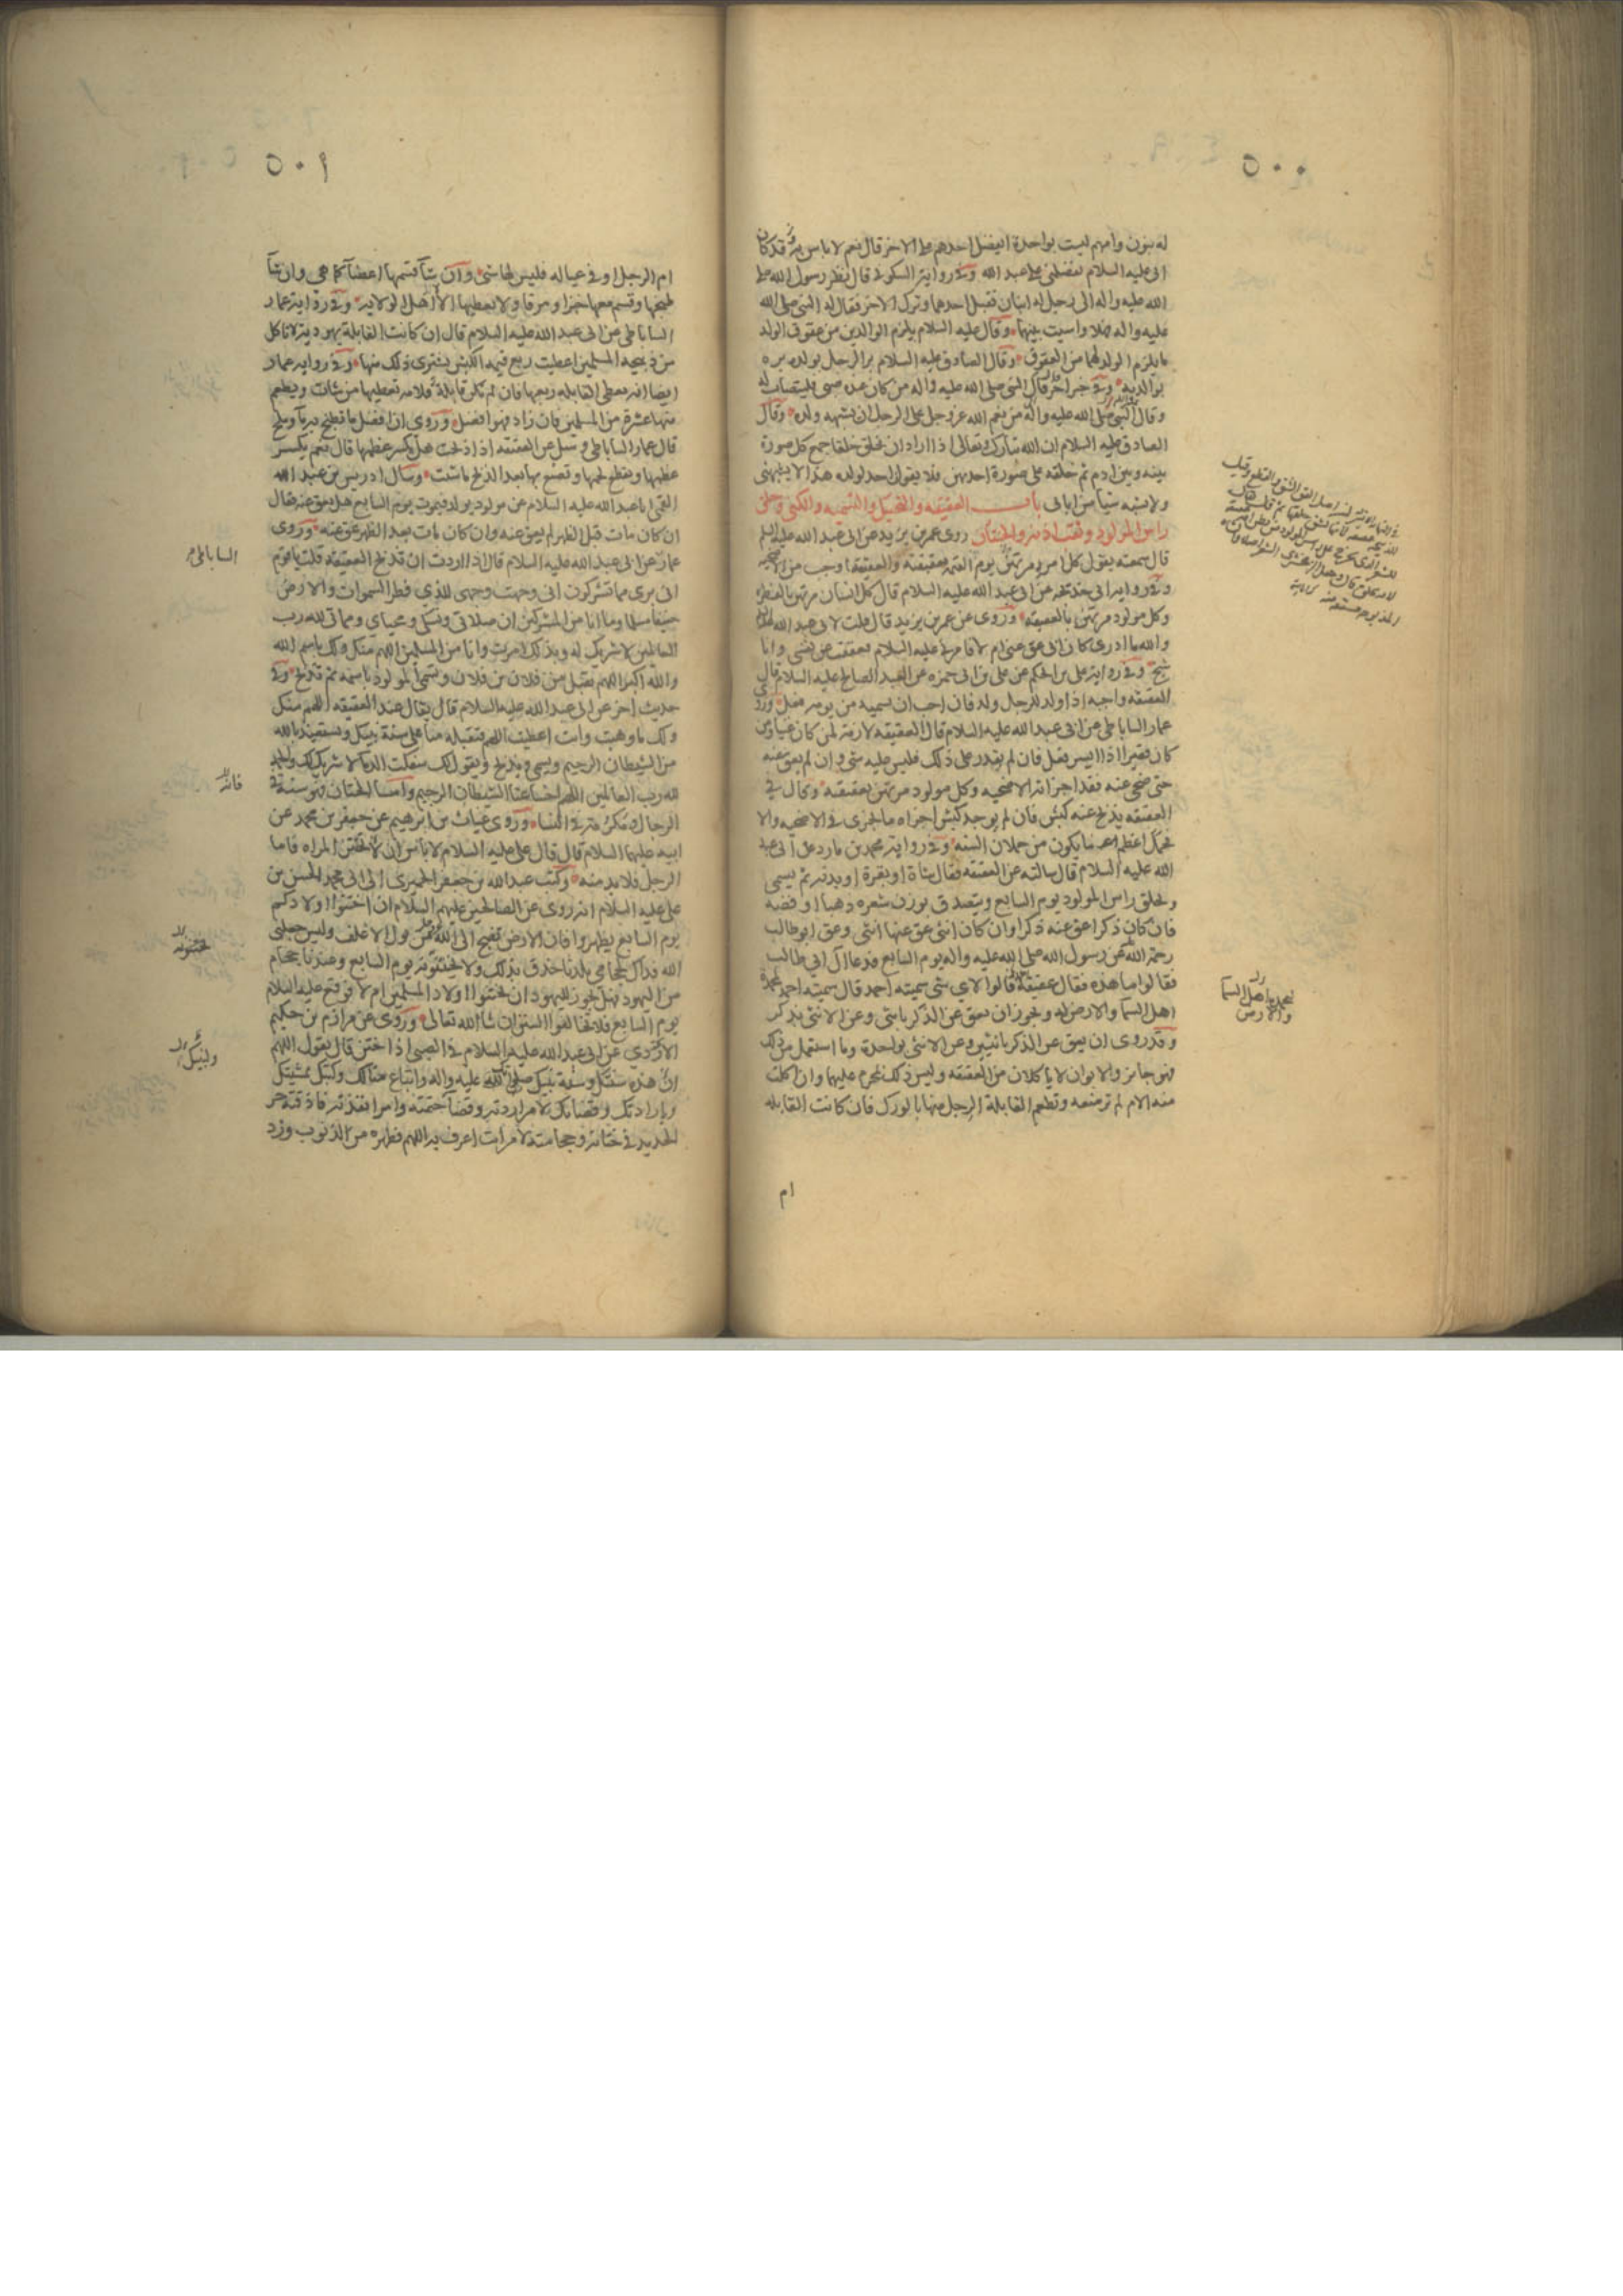 ٥٠٠
له بنون وامهم ليست بواحدة ايفضل احدهم على الاخر قال نعم لا باس به وقد كان
ابى عليه السلام يفضلنى على عبد الله وفى رواية السكونى قال نظر رسول الله صلى
الله عليه واله الى رجل له ابنان فقبل احدهما وترك الاخر فقال له النبى صلى الله
عليه واله فهلا واسيت بينهما وقال عليه السلام يلزم الوالدين من عقوق الولد
ما يلزم الولد لهما من العقوق وقال الصادق عليه السلام بر الرجل بولده بره
بوالديه وفى خبر اخر قال النبى صلى الله عليه واله من كان عنده صبى فليتصاب له
وقال النبى صلى الله عليه واله من نعم الله عز وجل على الرجل ان يشبهه ولده وقال
الصادق عليه السلام ان الله تبارك وتعالى اذا اراد ان يخلق خلقا جمع كل صورة
بينه وبين ادم ثم خلقه على صورة احديهن فلا يقولن احد لولده هذا لا يشبهنى
ولا يشبه شيئا من ابائى باب العقيقه والتحنيك والتسميه والكنى وحلق
راس المولود وثقب اذنيه والختان روى عمر بن يزيد عن ابى عبد الله عليه السلم
قال سمعته يقول كل امرء مرتهن يوم القيمه بعقيقته والعقيقة اوجب من الاضحيه
وفى رواية ابى خديجه عن ابى عبد الله عليه السلام قال كل انسان مرتهن بالفطره
وكل مولود مرتهن بالعقيقه وروى عن عمر بن يزيد قال قلت لابى عبد الله
والله ما ادرى كان ابى عق عنى ام لا فامرنى عليه السلام فعققت عن نفسى وانا
شيخ وفى رواية على بن الحكم عن على بن ابى حمزه عن العبد الصالح عليه السلام قال
العقيقه واجبه اذا ولد للرجل ولد فان احب ان يسميه من يومه فعل وروى
عمار الساباطى عن ابى عبد الله عليه السلام قال العقيقه لازمة لمن كان غنيا ومن
كان فقيرا اذا ايسر فعل فان لم يقدر على ذلك فليس عليه شى وان لم يعق عنه
حتى ضحى عنه فقد اجزاته الاضحيه وكل مولود مرتهن بعقيقه وقال فى
العقيقه يذبح عنه كبش فان لم يوجد كبش اجزاه ما يجزى فى الاضحيه والا
فحمل اعظم ما يكون من حملان السنه وفى رواية محمد بن مارد عن ابى عبد
الله عليه السلام قال سالته عن العقيقه فقال شاة او بقرة او بدنه ثم يسمى
ويحلق راس المولود يوم السابع ويتصدق بوزن شعره ذهبا او فضه
فان كان ذكرا عق عنه ذكرا وان كان انثى عق عنها انثى وعق ابو طالب
رحمة الله عن رسول الله صلى الله عليه واله يوم السابع فدعا ال ابى طالب
فقالوا ما هذه فقال عقيقة احمد قالوا لاى شى سميته احمد قال سميته احمد لمحمدة
اهل السما والارض له ويجوز ان يعق عن الذكر بانثى وعن الانثى بذكر
وقد روى ان يعق عن الذكر بانثيين وعن الانثى بواحدة وما استعمل من ذلك
فهو جائز والابوان لا ياكلان من العقيقه وليس ذلك بمحرم عليهما وان اكلت
منه الام لم ترضعه وتطعم القابلة الرجل منها بالورك فان كانت القابله
ام
ليحمده اهل السما
والارض
٥٠١
ام الرجل او فى عياله فليس لها شى وان شا قسمها اعضا كما هى وان شا
طبخها وقسم معها خبزا ومرقا ولا يعطيها الا لاهل الولاية وفى رواية عمار
الساباطى عن ابى عبد الله عليه السلام قال ان كانت القابلة يهودية لا تاكل
من ذبيحه المسلمين اعطيت ربع قيمه الكبش يشترى ذلك منها وفى رواية عمار
ايضا انه يعطى القابله ربعها فان لم تكن قابلة فلامه تعطيها من شات ويطعم
منها عشرة من المسلمين فان زاد فهو افضل وروى ان افضل ما يطبخ به ما وملح
قال عمار الساباطى وسئل عن العقيقه اذا ذبحت هل يكسر عظمها قال نعم يكسر
عظمها ويقطع لحمها وتصنع بها بعد الذبح ما شئت وسال ادريس بن عبد الله
القمى ابا عبد الله عليه السلام عن مولود يولد فيموت يوم السابع هل يعق عنه فقال
ان كان مات قبل الظهر لم يعق عنه وان كان مات بعد الظهر عق عنه وروى
عمار عن ابى عبد الله عليه السلام قال اذا اردت ان تذبح العقيقة قلت يا قوم
انى برى مما تشركون انى وجهت وجهى للذى فطر السموات والارض
حنيفا مسلما وما انا من المشركين ان صلاتى ونسكى ومحياى ومماتى لله رب
العالمين لا شريك له وبذلك امرت وانا من المسلمين اللهم منك ولك باسم الله
والله اكبر اللهم تقبل من فلان بن فلان وتسمى المولود باسمه ثم تذبح وفى
حديث اخر عن ابى عبد الله عليه السلام قال يقال عند العقيقه اللهم منك
ولك ما وهبت وانت اعطيت اللهم فتقبله منا على سنة نبيك ونستعيذ بالله
من الشيطان الرجيم ويسمى ويذبح ويقول لك سفكت الدما لا شريك لك والحمد
لله رب العالمين اللهم اخسا عنا الشيطان الرجيم واما الختان فهو سنة فى
الرجال ومكرمة فى النسا وروى غياث بن ابرهيم عن جعفر بن محمد عن
ابيه عليهما السلام قال قال على عليه السلام لا باس ان لا تختتن المراه فاما
الرجل فلا بد منه وكتب عبد الله بن جعفر الحميرى الى ابى محمد الحسن بن
على عليه السلام انه روى عن الصالحين عليهم السلام ان اختنوا اولادكم
يوم السابع يطهروا فان الارض تضج الى الله من بول الاغلف وليس جعلنى
الله فداك لحجامى بلدنا حذق بذلك ولا يختنونه يوم السابع وعندنا حجام
من اليهود فهل يجوز لليهود ان يختنوا اولاد المسلمين ام لا فوقع عليه السلام
يوم السابع فلا تخالفوا السنن ان شا الله تعالى وروى عن مرازم بن حكيم
الازدى عن ابى عبد الله عليه السلام فى الصبى اذا ختن قال يقول اللهم
ان هذه سنتك وسنة نبيك صلى الله عليه واله واتباع منا لك ولكتبك بمشيتك
وبارادتك وقضائك لامر اردته وقضا حتمته وامر انفذته فاذقته حر
الحديد فى ختانه وحجامته لامر انت اعرف به اللهم فطهره من الذنوب وزد
الساباطى
فانه
يختنونه
ولنبيك